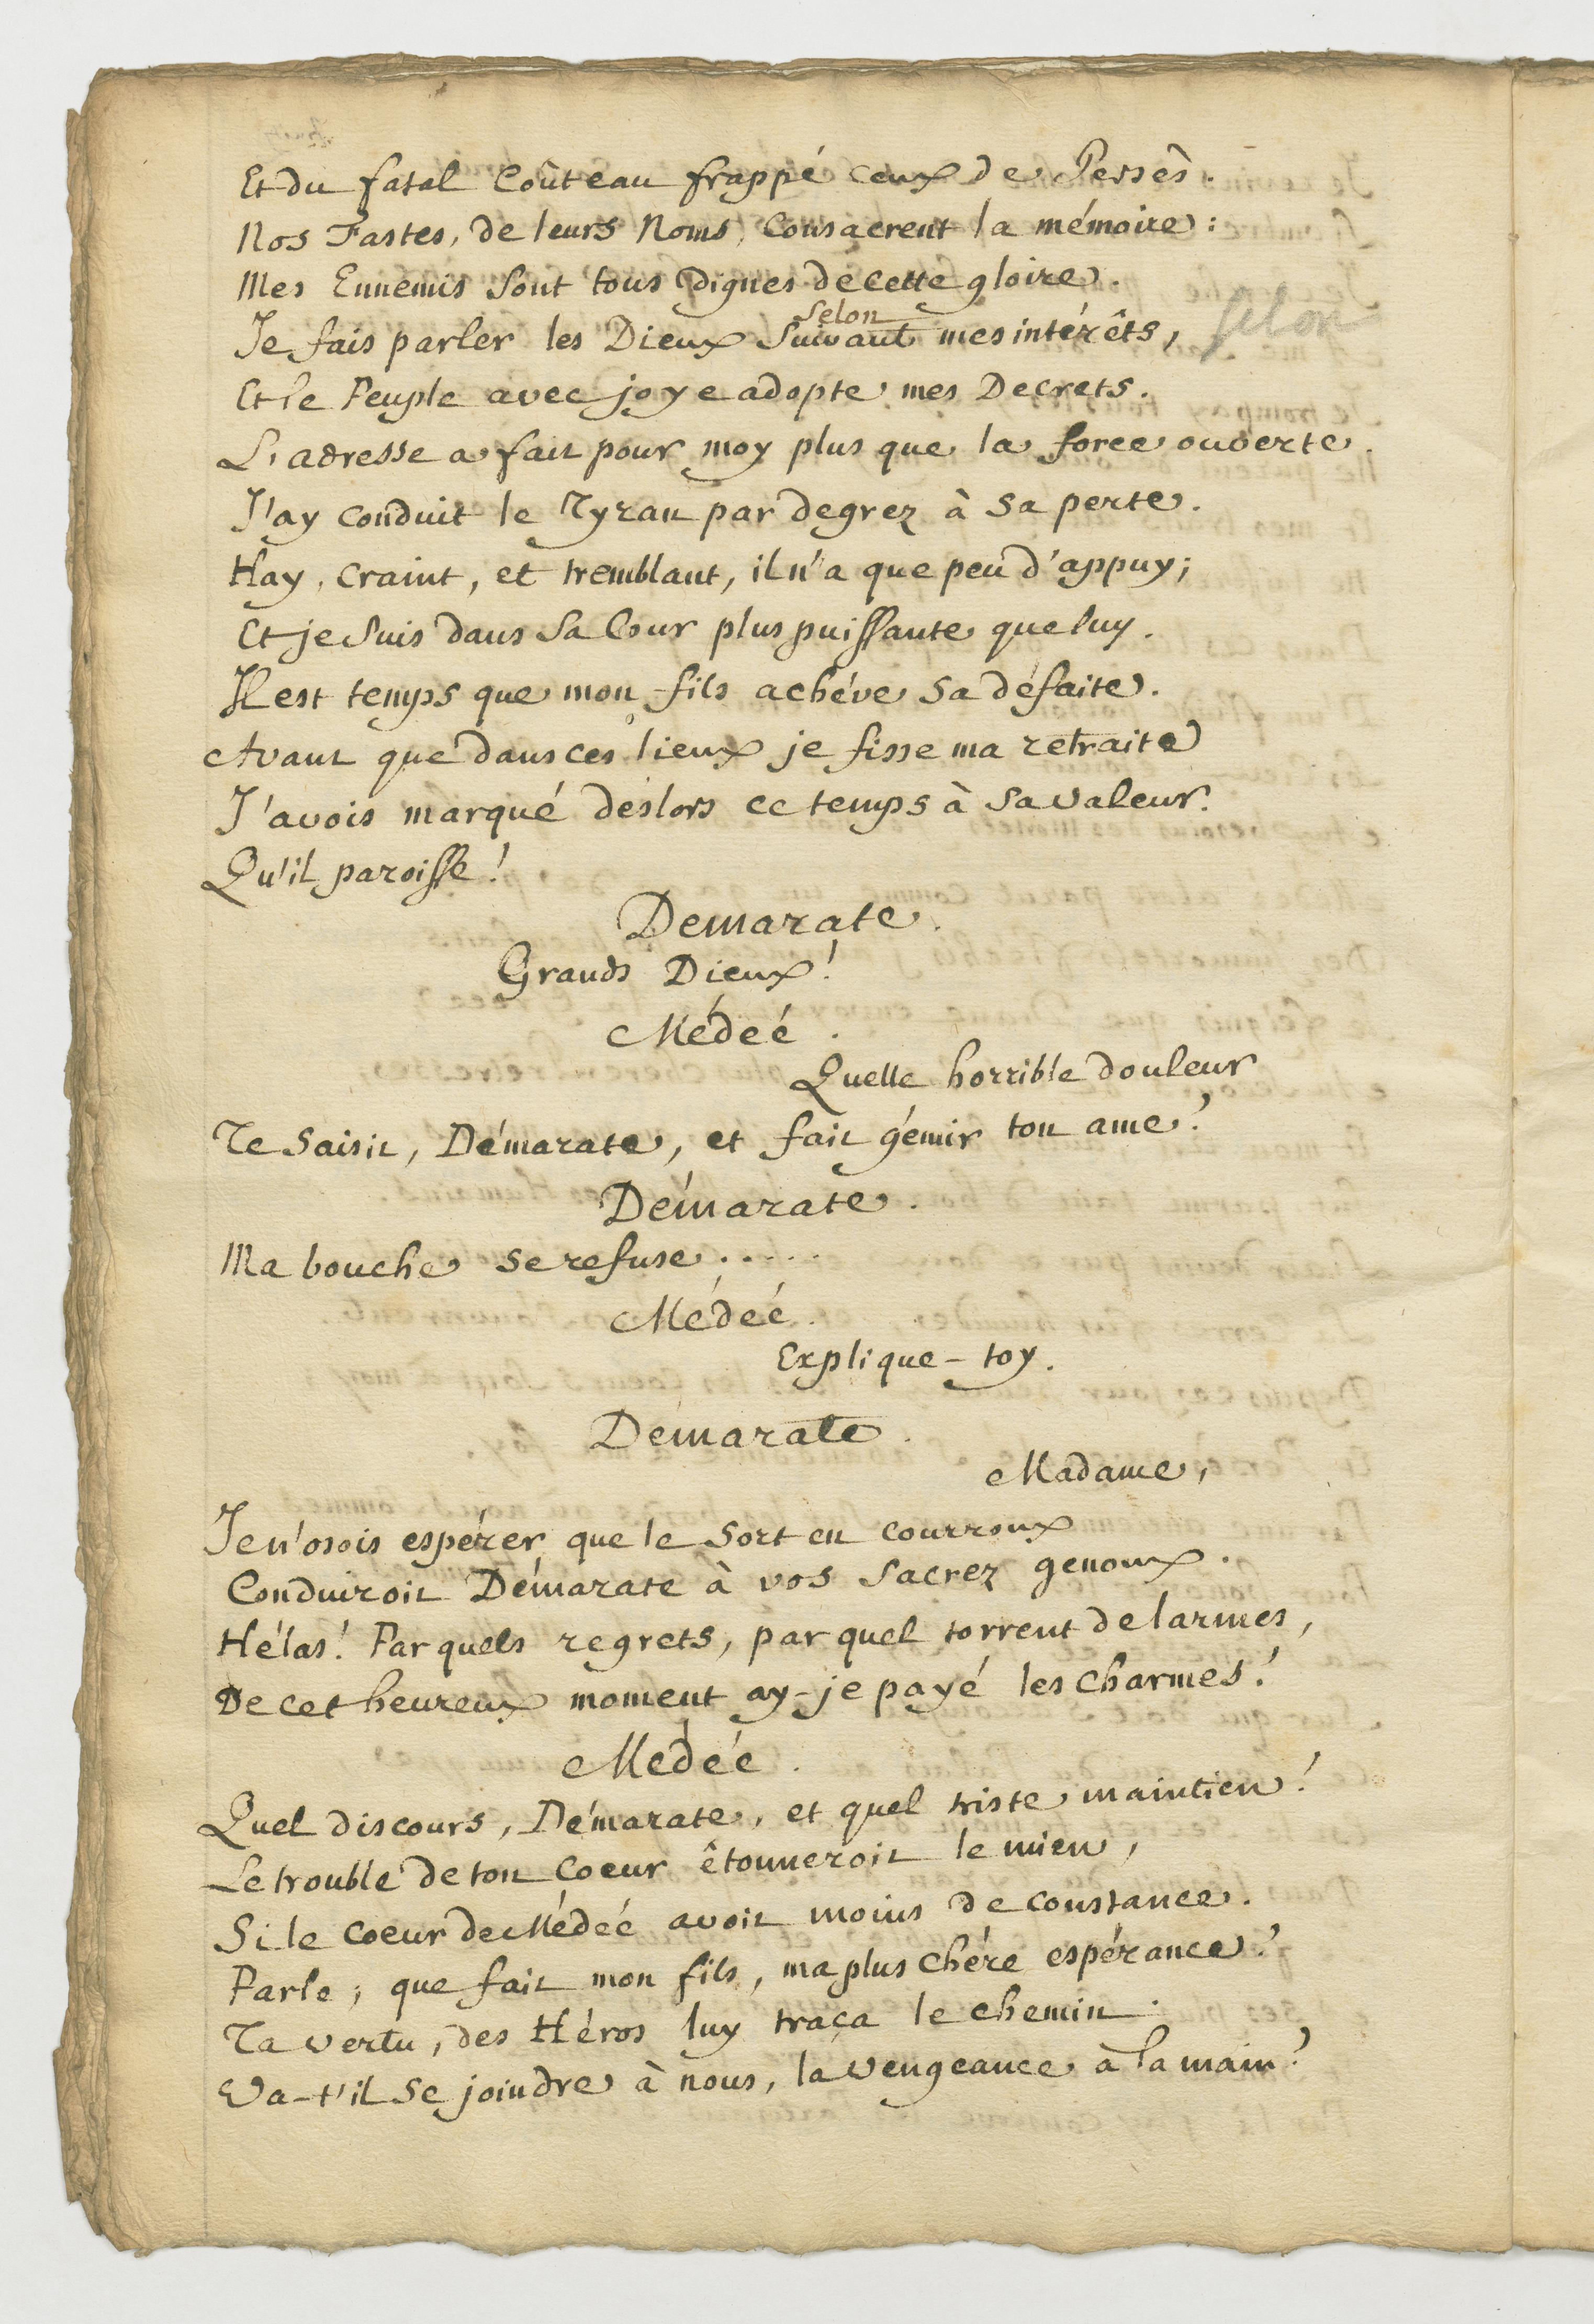 Et du fatal Coûteau frappé ceux de Persès.
Nos Fastes, de leurs Noms, Consacrent la mémoire:
Mes Ennemis sont tous Dignes de cette gloire.
selon
Je fais parler les Dieux suivant mes intérêts, selon
Et le Peuple avec joye adopte mes Decrets.
L'adresse a fait pour moy plus que la force ouverte.
J'ay conduit le Tyran par degrez à sa perte.
Hay, craint, et tremblant, il n'a que peu d'appuy;
Et je suis dans sa Cour plus puissante que luy.
Il est temps que mon fils achéve sa défaite.
Avant que dans ces lieux je fisse ma retraite
J'avois marqué deslors ce temps à sa valeur.
Qu'il paroisse!
Demarate.
Grands Dieux!
Médeé.
Quelle horrible douleur
Te saisit, Démarate, et fait gémir ton ame?
Démarate.
Ma bouche se refuse.....
Médeé.
Explique-toy.
Démarate.
Madame,
Je n'osois espérer que le sort en courroux
Conduiroit Démarate à vos sacrez genoux.
Hélas! Par quels regrets, par quel torrent de larmes,
De cet heureux moment ay-je payé les charmes!
Médeé.
Quel discours, Démarate, et quel triste maintien!
Le trouble de ton Coeur êtonneroit le mien,
Si le coeur de Médeé avoit moins de constance.
Parle; que fait mon fils, ma plus chére espérance?
Ta vertu, des Héros luy traça le chemin.
Va-t'il se joindre à nous, la vengeance à la main?